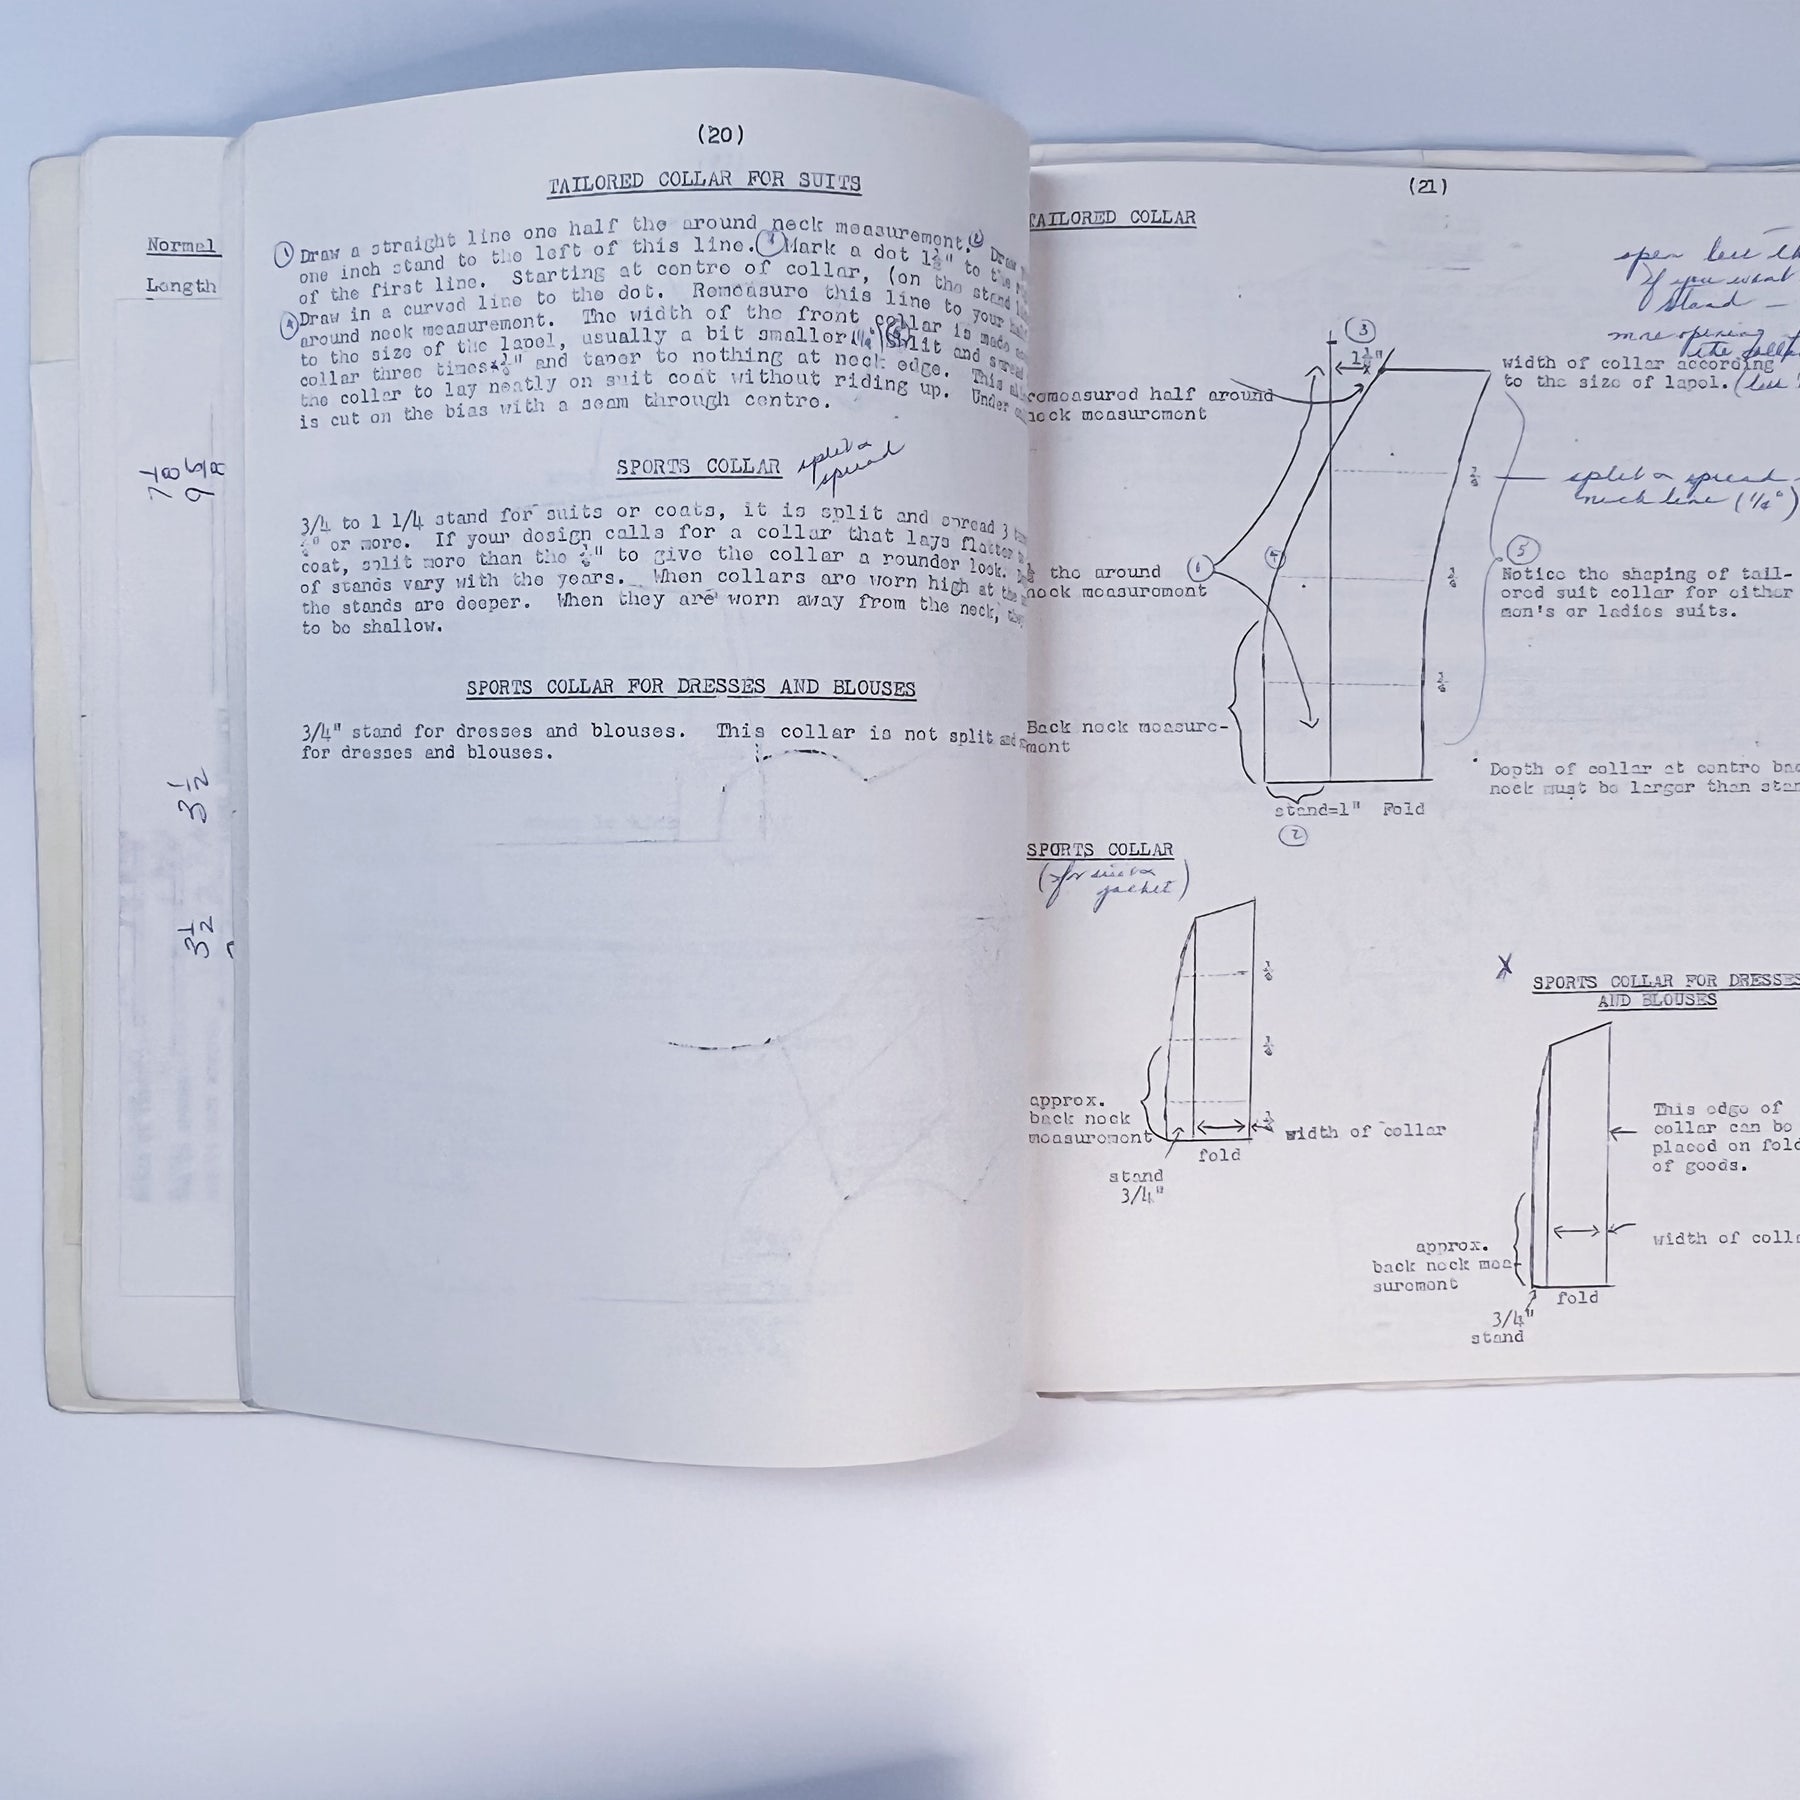 Normal
Length
7 1/8
9 5/8
3 1/2
3 1/2
(20)
TAILORED COLLAR FOR SUITS
① Draw a straight line one half the around neck measurement. ② Draw
one inch stand to the left of this line. ③ Mark a dot 1½" to the
of the first line. Starting at centre of collar, (on the stand
④ Draw in a curved line to the dot. Remeasure this line to your half
around neck measurement. The width of the front collar is made
to the size of the lapel, usually a bit smaller Split and spread
collar three times and taper to nothing at neck edge. This
the collar to lay neatly on suit coat without riding up. Under
is cut on the bias with a seam through centre.
SPORTS COLLAR split & spread
3/4 to 1 1/4 stand for suits or coats, it is split and spread 3
or more. If your design calls for a collar that lays flatter
coat, split more than the to give the collar a rounder look.
of stands vary with the years. When collars are worn high at the
the stands are deeper. When they are worn away from the neck,
to be shallow.
SPORTS COLLAR FOR DRESSES AND BLOUSES
3/4" stand for dresses and blouses. This collar is not split and
for dresses and blouses.
(21)
TAILORED COLLAR
open less
if you want
stand —
more opening
the
③
width of collar according
to the size of lapel. (less
remeasured half around
neck measurement
split & spread
neck line (1/4")
①
④
the around
neck measurement
⑤
Notice the shaping of tail-
ored suit collar for either
men's or ladies suits.
Back neck measure-
ment
Depth of collar at centre
neck must be larger than
stand=1" Fold
②
SPORTS COLLAR
(for suit &
jacket)
X
SPORTS COLLAR FOR DRESSES
AND BLOUSES
approx.
back neck
measurement
width of collar
fold
stand
3/4"
This edge of
collar can be
placed on fold
of goods.
width of
approx.
back neck mea-
surement
fold
3/4"
stand